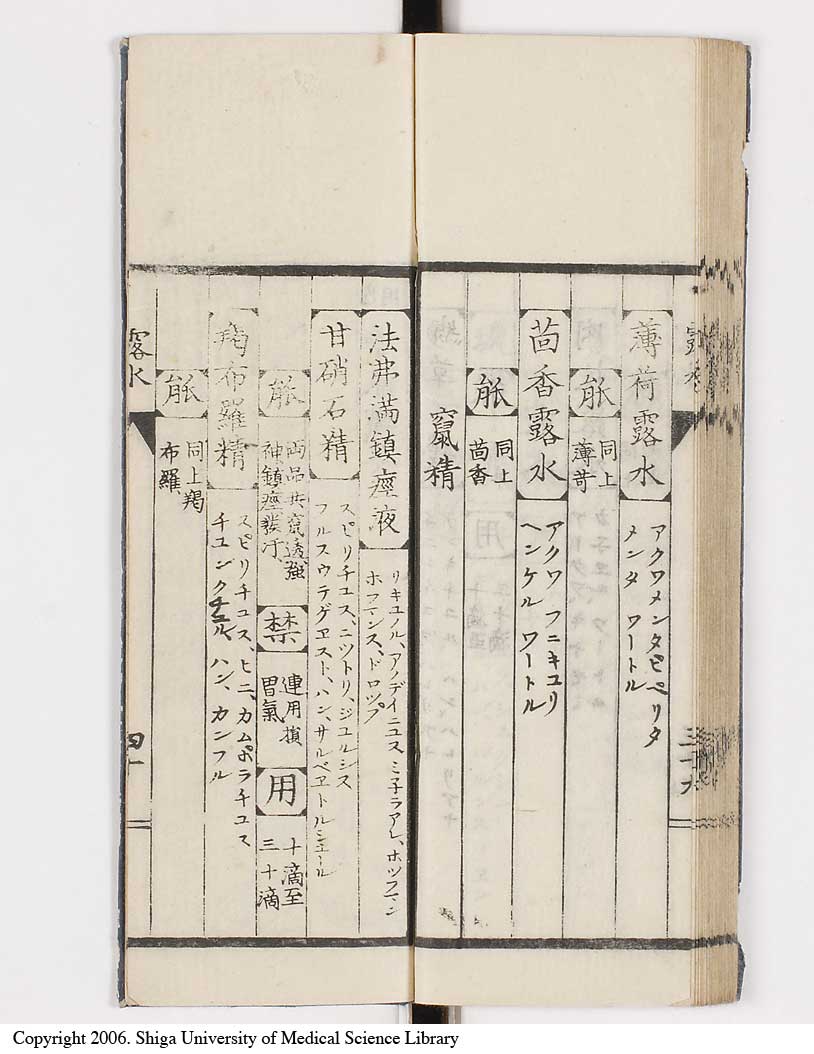 薄荷露水
アクワメンタピペリタ
メンタ ワートル
能
同上
薄苛
茴香露水
アクワ フニキユリ
ヘンケル ワートル
能
同上
茴香
竄精
法弗満鎮痙液
リキユノル、アノデイニユス ミ子ラアレ、ホツフマン
ホフマンス、ドロツプ
甘硝石精
スピリチユス、ニツトリ、ジユルシス
フルスウテゲヱスト、ハン、サルペヱトルシユール
能
両品共竄透強
神鎮痙発汗
禁
連用損
胃氣
用
十滴至
三十滴
羯布羅精
スピリチユス、ヒニ、カムポラチユス
チユンクチユル ハン、カンフル
能
同上羯
布羅
露水
四十
Copyright 2006. Shiga University of Medical Science Library